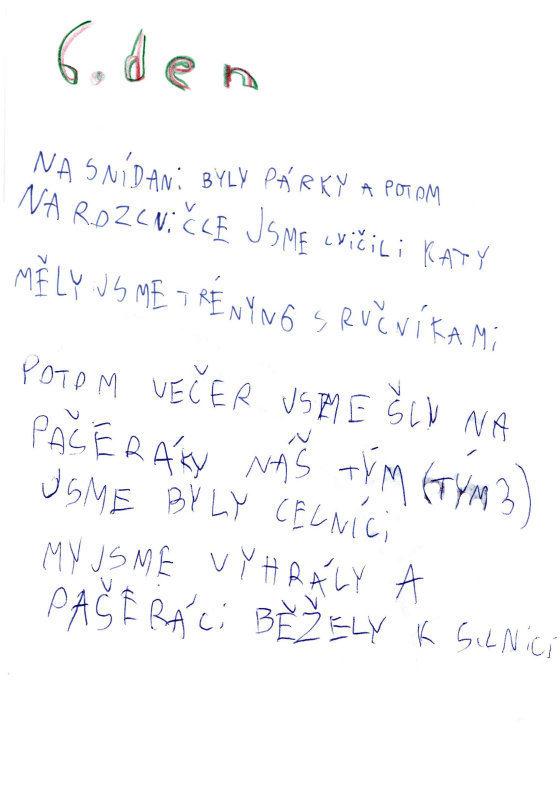 6. den
NA SNÍDANI BYLY PÁRKY A POTOM
NA ROZCVIČCE JSME CVIČILI KATY
MĚLY JSME TRÉNYNG S RUČNÍKAMI
POTOM VEČER JSME ŠLY NA
PAŠERÁKY NÁŠ TÝM (TÝM 3)
JSME BYLY CELNÍCI
MY JSME VYHRÁLY A
PAŠERÁCI BĚŽELY K SILNICI